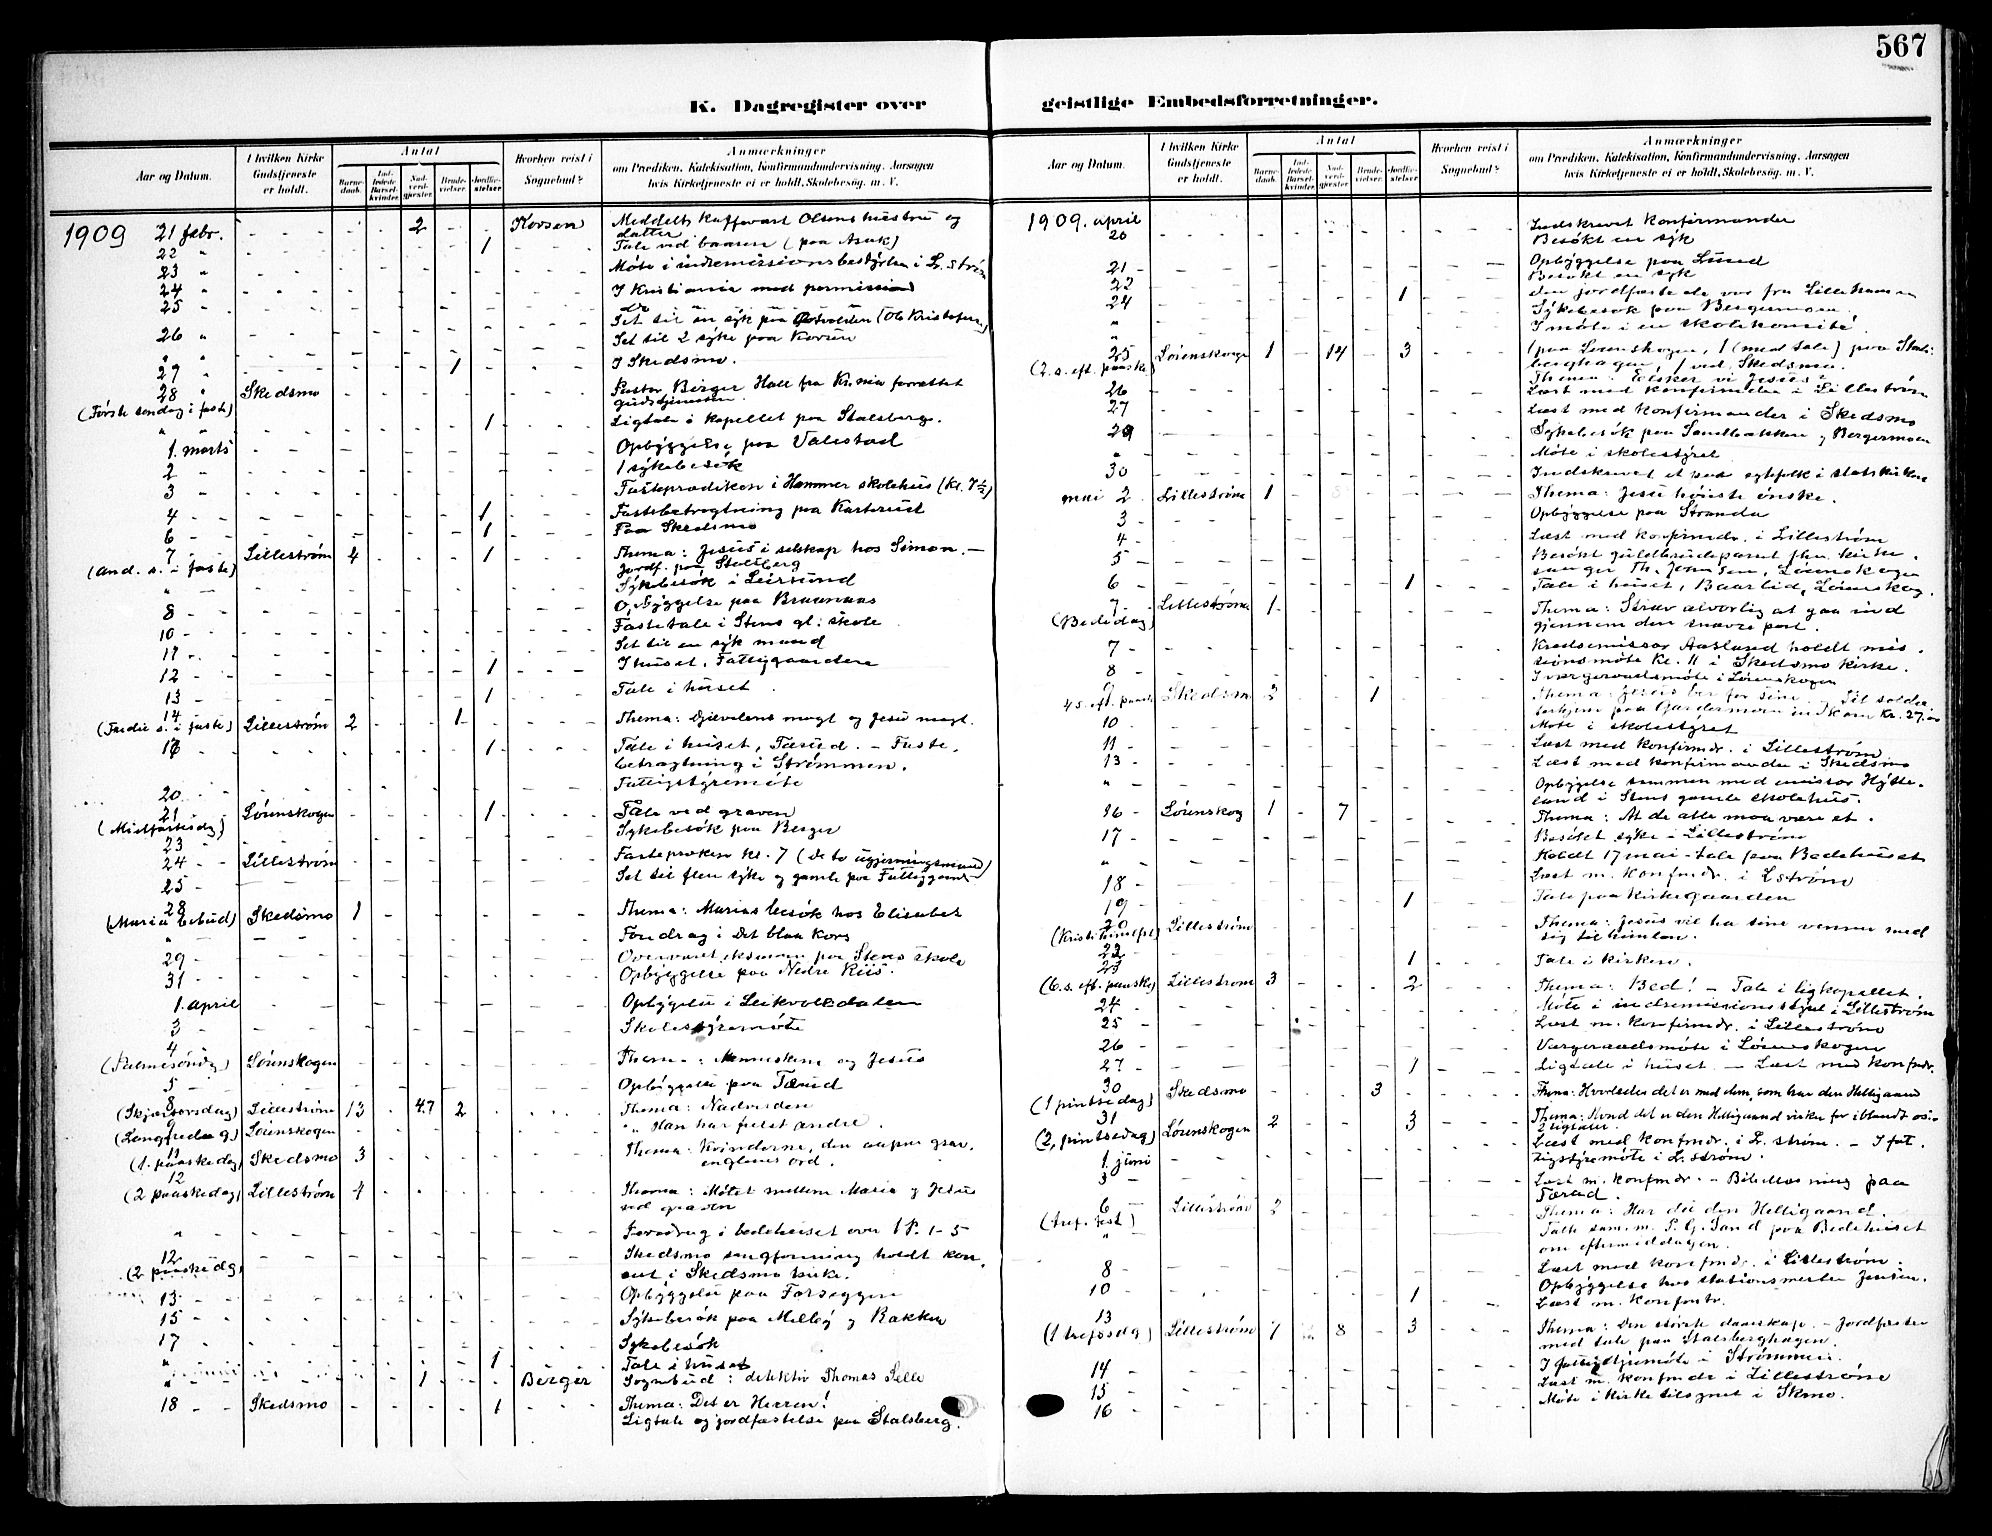 567
K. Dagregister over
Aar og Datum.
I hvilken Kirke Gudstjeneste er holdt.
Antal
Barnedaab.
Indledede Barselkvinder.
Nadverdgjester
Brudevielser.
Jordfæstelser
Hvorhen reist i Sognebud?
Anmærkninger
om Prædiken, Katekisation, Konfirmandundervisning, Aarsagen
hvis Kirketjeneste ei er holdt, Skolebesøg. m. V.
1909 21 febr. 2 Meddelt Olsens hustru og
datter
22 " 1 Tale ved baaren (paa Asak)
23 " Møte i indremissionsbestyrelsen i L. strøm
24 " I Kristiania med permission
25 " Set til en syk paa (Ole Kristofersen)
26 " Set til 2 syke paa
" " 1 I Skedsmo.
28 " Skedsmo Pastor Birger Hall fra Kr.nia forrettet
(Første søndag i faste) gudstjenesten.
" " 1 Ligtale i kapellet paa Stalsberg.
1. marts Opbyggelse paa Valstad
2 " 1 sykebesøk
3 " Fasteprædiken i Hammer skolehus (kl. 7½)
4 - 1 Fastebetragtning paa
6 - 1 Paa Skedsmo
7 Lillestrøm 4 1 Thema: Jesus i selskap hos Simon. -
(And. s. i faste) Jordf. paa Stalsberg
" Sykebesøk i Leirsund
8 - Opbyggelse paa Braanaas
10 - Fastetale i Stens gl. skole
11 - Set til en syk mand
12 - 1 I huset, Fattiggaarden
13 - 1 Tale i huset
14 Lillestrøm 2 1 Thema: Djævelens magt og Jesu magt.
(Tredie s. i faste)
1 Tale i huset, Tærud. - Faste-
betragtning i Strømmen.
20 - Fattigstyremøte
21 Lørenskogen 1 Tale ved graven
(Midfastesdg)
23 - Sykebesøk paa Berger
24 - Lillestrøm Fasteprækén kl. 7 (De to ugjerningsmænd)
25 - Set til flere syke og gamle paa Fattiggaard
28 Skedsmo 1 Thema: Marias besøk hos Elisabet
(Maria bebud)
" Foredrag i Det blaa kors
29 - Overværet eksamen paa Stens skole
31 - Opbyggelse paa Nedre Riis
1. april Opbyggelse i Leikvolddalen
3 - Skolestyremøte
4 Lørenskogen Thema: Menneskene og Jesus
(Palmesøndg)
5 - Opbyggelse paa Tærud
8 Lillestrøm 13 47 2 Thema: Nadverden
(Skjærtorsdag)
9 Lørenskogen " Han har frelst andre.
(Langfredag)
11 Skedsmo 3 Thema: Kvinderne, den aapne grav,
(1. paaskedag) englens ord.
12 Lillestrøm 4 Thema: Møtet mellem Maria og Jesus
(2 paaskedag) ved graven
" Foredrag i bedehuset over 1 P. 1-5
12 Skedsmo sangforening holdt kon-
(2 paaskedg) sert i Skedsmo kirke.
13 - Opbyggelse paa Farseggen
15 - Sykebesøk paa Melby og Bakken
17 - Sykebesøk
" 1 Tale i huset
" 1 Berger Sognebud: detektiv Thomas Selle
18 - Skedsmo 1 Thema: Det er Herren!
Ligtale og jordfæstelse paa Stalsberg.
geistlige Embedsforretninger.
Aar og Datum.
I hvilken Kirke Gudstjeneste er holdt.
Antal
Barnedaab.
Indledede Barselkvinder.
Nadverdgjester
Brudevielser.
Jordfæstelser
Hvorhen reist i Sognebud?
Anmærkninger
om Prædiken, Katekisation, Konfirmandundervisning, Aarsagen
hvis Kirketjeneste ei er holdt, Skolebesøg. m. V.
1909. april Indskrevet konfirmander
20 Besøkt en syk
21 - Opbyggelse paa Lund
22 Besøkt en syk
24 1 Den jordfæstede var fra Lillehammer
Sykebesøk paa Bergermoen.
" I møte i en skolekomité.
25 Lørenskogen 1 14 3 1 paa Lørenskogen, 1 (med tale) paa Stals-
(2. s. eft. paaske) berghagen, 1 ved Skedsmo.
Thema: Elsker vi Jesus?
26 Læst med konfirmander i Lillestrøm
27 Læst med konfirmander i Skedsmo
29 Sykebesøk paa Sandbakken og Bergermoen
" Møte i skolestyret
30 Indskrevet et par egtefolk i statskirken
mai 2 Lillestrøm 1 Thema: Jesu høieste ønske.
3 - Opbyggelse paa Stranda
4 - Læst med konfirmdr. i Lillestrøm
5 - Besøkt guldbrudeparet fhv. kirke-
sanger Th. Jensen, Lørenskogen
6 - 1 Tale i huset, Baarlid, Lørenskog.
7 - Lillestrøm 1 Thema: Stræv alvorlig at gaa ind
(Bededag) gjennem den snævre port.
7 - Kredsmissær Aasland holdt mis-
sionsmøte kl. 11 i Skedsmo kirke.
8 - I vergeraadsmøte i Lørenskogen
4 s. eft. paaske Skedsmo 2 1 Thema: Jesus ber for sine. Til solda-
terhjem paa Gardermoen indkom kr. 27.
10 - Møte i skolestyret
11 - Læst med konfirmdr. i Lillestrøm
13 - Læst med konfirmander i Skedsmo
" Opbyggelse sammen med emissær Hytte-
land i Stens gamle skolehus.
16 - Lørenskog 1 7 Thema: At de alle maa være et.
17 - Besøkt syke i Lillestrøm
" Holdt 17 mai-tale paa Bedehuset
18 - Læst m. konfmdr. i Lstrøm
19 - 1 Tale paa kirkegaarden
20 Lillestrøm Thema: Jesus vil ha sine venner med
(Kristi himmelf.) sig til himlen.
22 1 Tale i kirken.
23 Lillestrøm 3 2 Thema: Bed! - Tale i ligkapellet.
(6. s. eft. paaske)
24 - Møte i indremissionsstyret i Lillestrøm
25 - Læst m. konfirmdr. i Lillestrøm
26 - Vergeraadsmøte i Lørenskogen
27 - 1 Ligtale i huset - Læst med konfmdr.
30 Skedsmo 3 Thema: Hvorledes det er med dem, som har den Helligaand
(1 pintsedag)
31 Lørenskogen 2 3 Thema: Hvad det er den Helligaand virker for iblandt os.
(2. pintsedag) 2 ligtaler.
1. juni Læst med konfmdr. i L. strøm. - I fat-
tigstyremøte i L. strøm.
3 - Læst m. konfmdr. - Bibellæsning paa
Tærud.
6 Lillestrøm 2 Thema: Har du den Helligaand.
(Tref. fest)
" Talte sam. m. P. G. Sand paa Bedehuset
om eftermiddagen.
8 - Læst med konfmdr. i Lillestrøm.
10 - Opbyggelse hos stationsmester Jensen.
1 Læst m. konfmdr.
13 Lillestrøm 7 8 3 Thema: Den største daarskap. - Jordfæstet
(1 s. e. tref.) med tale paa Stalsberghagen.
14 - I fattigstyremøte i Strømmen.
15 - Læst m. konfmdr i Lillestrøm
16 - Møte i kirketilsynet i Skmo.